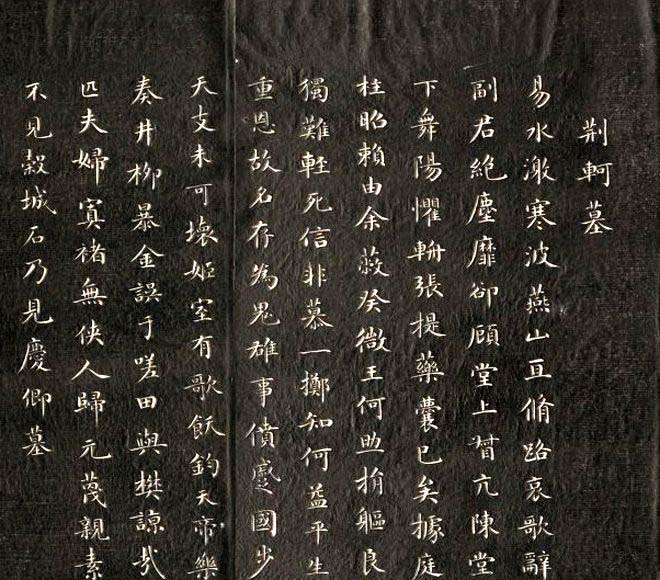 荊軻墓
易水澂寒波燕山亘脩路哀歌辭
副君絕塵靡卻顧堂上督亢陳堂
下舞陽懼軵張提藥囊已矣據庭
柱昭賴由余癸微王何助捐軀良
獨難輕死信非慕一擲知何益平生
重恩故名存為鬼雄事僨蹙國步
天支未可壞姬室有歌飫鈞天帝樂
奏井柳暴金誤于嗟田與樊諒哉
匹夫婦寘褚無俠人歸元蔑親素
不見穀城石乃見慶卿墓